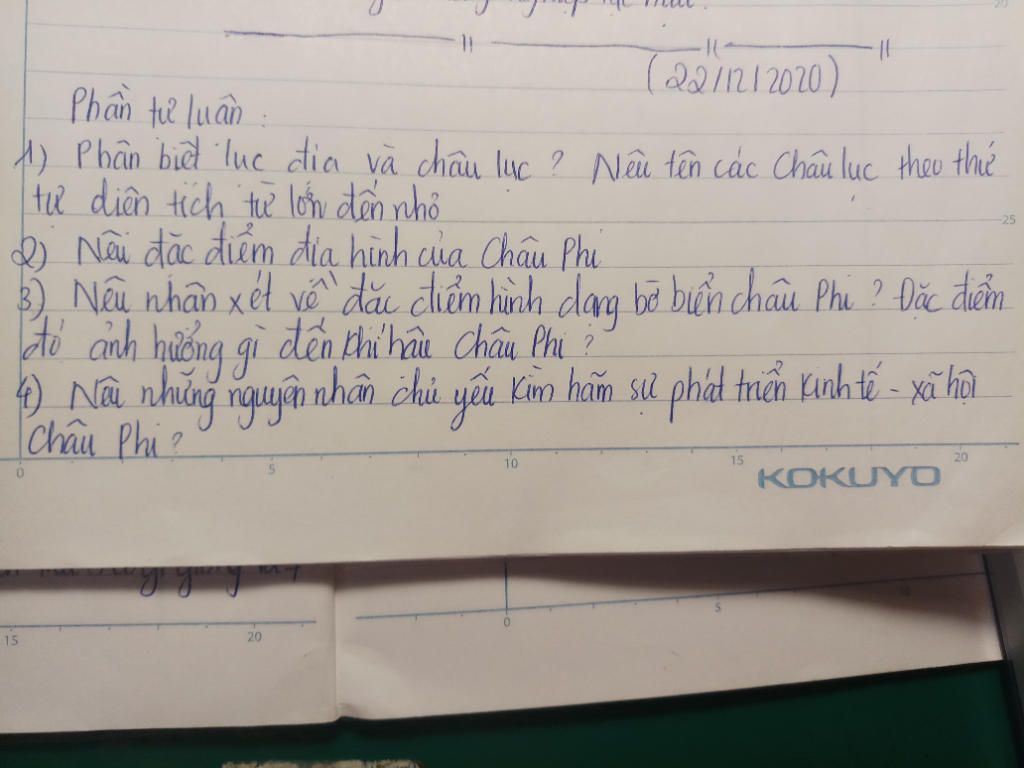 (22/12/2020)
Phần tự luận :
1) Phân biệt lục địa và châu lục ? Nêu tên các Châu lục theo thứ
tự diện tích từ lớn đến nhỏ
25
2) Nêu đặc điểm địa hình của Châu Phi
3) Nêu nhận xét về đặc điểm hình dạng bờ biển châu Phi ? Đặc điểm
đó ảnh hưởng gì đến khí hậu Châu Phi ?
4) Nêu những nguyên nhân chủ yếu kìm hãm sự phát triển kinh tế - xã hội
Châu Phi ?
0 5 10 15 20
KOKUYO
15 20 0 5